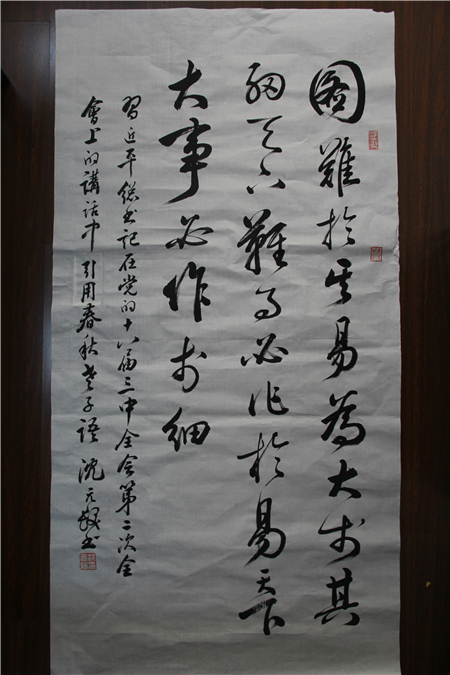 圖難於其易為大於其
細天下難事必作於易天下
大事必作於細
習近平總书记在党的十八届三中全会第二次全
會上的講话中引用春秋老子語 沈元书